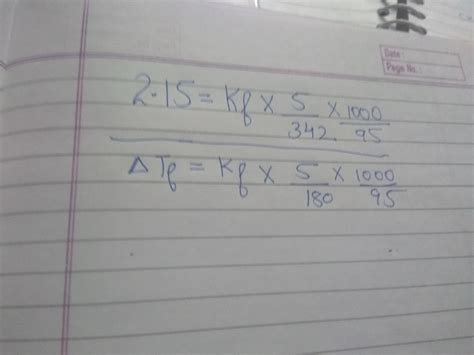 Date :
Page No. :
2.15 = Kf × 5/342 × 1000/95
ΔTf = Kf × 5/180 × 1000/95